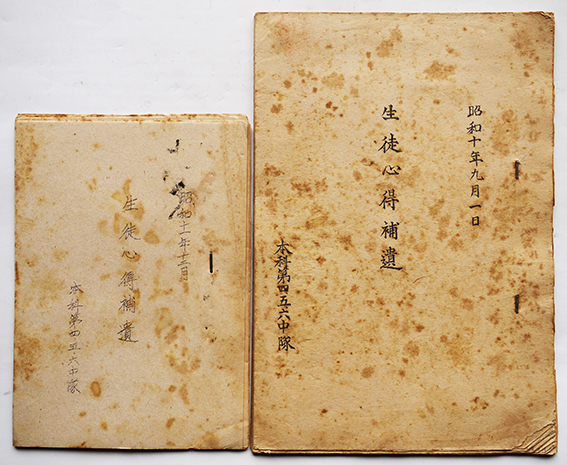 昭和十年九月一日
生徒心得補遺
本科第四五六中隊
昭和十一年十二月
生徒心得補遺
本科第四五・六中隊